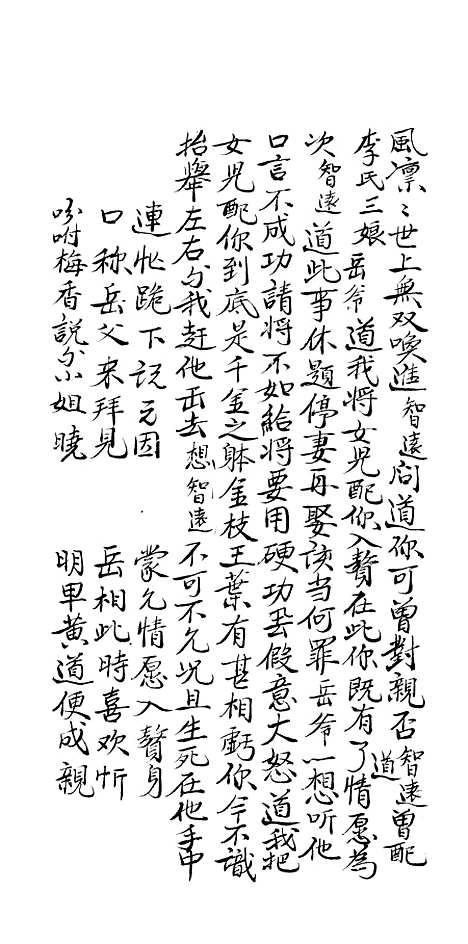 風凛〻世上無双喚進智遠问道你可曾對親否智遠道曾配
李氏三娘岳爷道我将女児配你入贅在此你既有了情愿為
次智遠道此事休題停妻再娶该当何罪岳爷一想听他
口言不成功請将不如給将要用硬功丢假意大怒道我把
女児配你到底是千金之躰金枝玉葉有甚相虧你今不識
抬舉左右与我赶他出去想智遠不可不允况且生死在他手中
連忙跪下说元因
蒙允情愿入贅身
口称岳父来拜見
岳相此時喜欢忻
吩咐梅香説与小姐曉
明甲黄道便成親